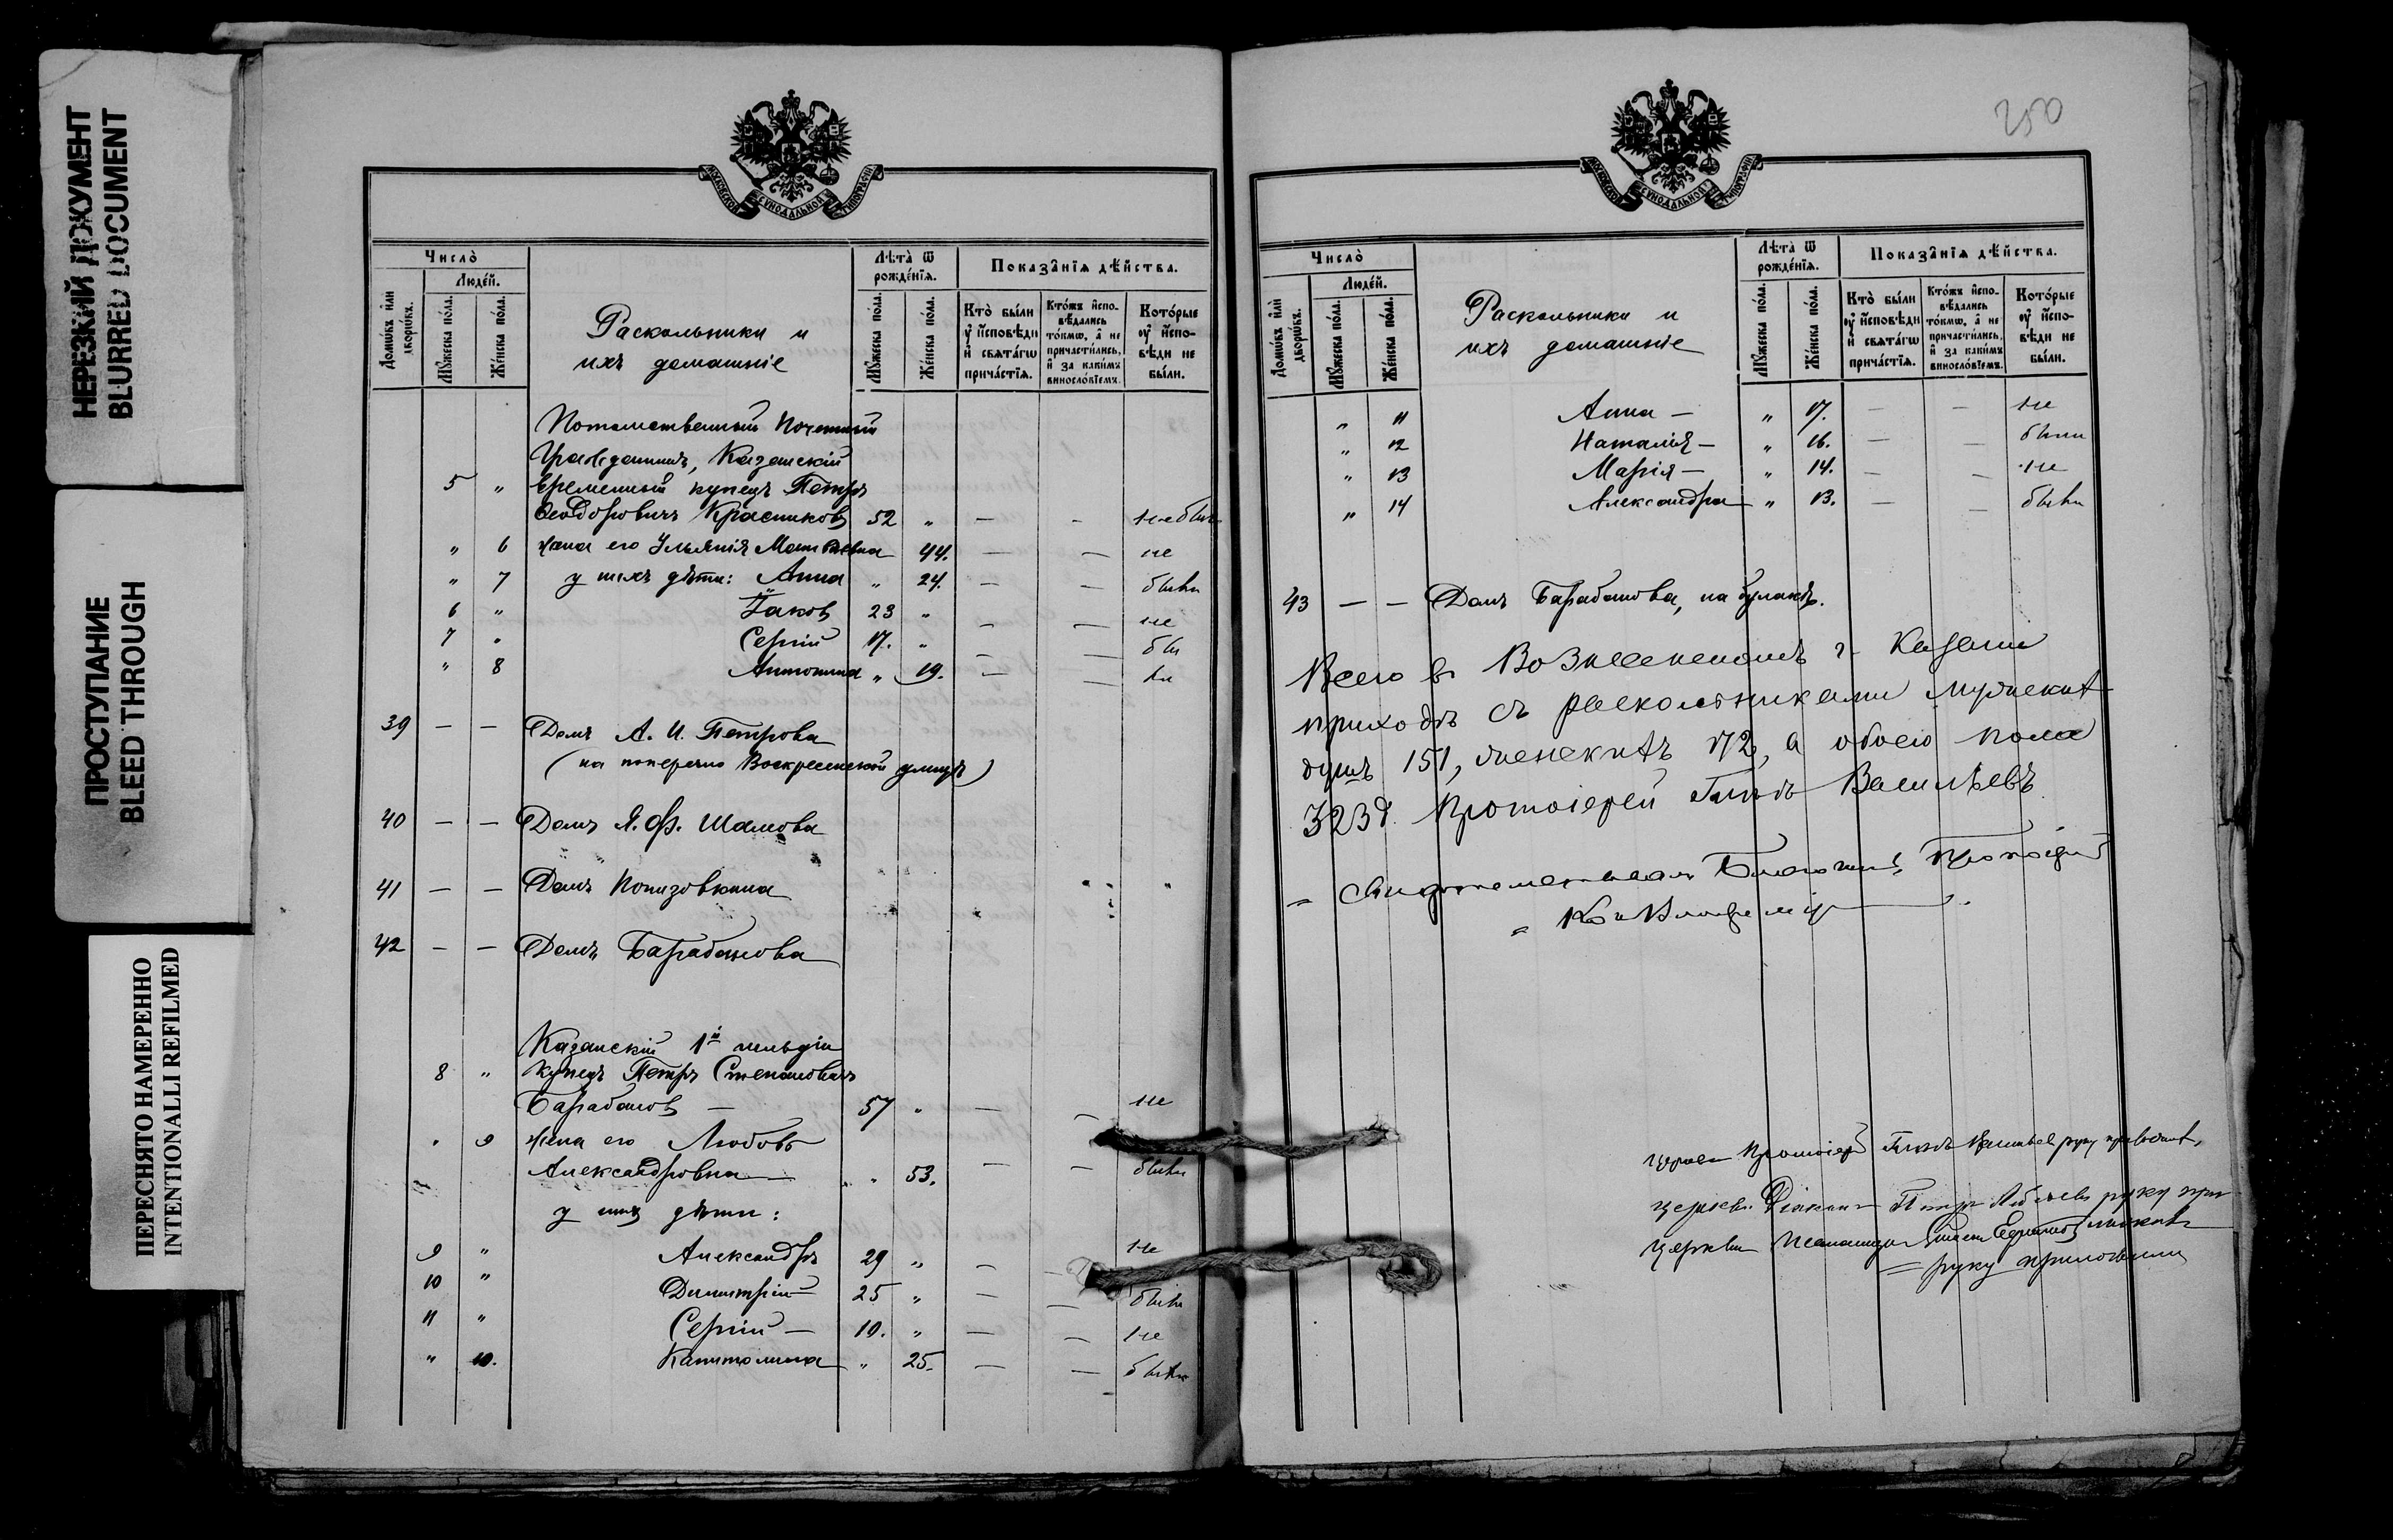 НЕРЕЗКИЙ ДОКУМЕНТ
BLURRED DOCUMENT
ПРОСТУПАНИЕ
BLEED THROUGH
ПЕРЕСНЯТО НАМЕРЕННО
INTENTIONALLI REFILMED
МОСКОВСКОЙ СУНОДАЛЬНОЙ ТИПОГРАФІИ
Число̀
Людей.
Домѡвъ или дворѡвъ.
Мꙋжеска пола.
Женска пола.
Раскольники и
ихъ домашніе
Лѣта ѿ рожденїѧ.
Мꙋжеска пола.
Женска пола.
Показанїѧ дѣйства.
Кто были ᲂу҆ исповѣди и свѧтагѡ причастїѧ.
Ктожъ исповѣдались токмѡ, а не причастились, и за какимъ винословїемъ.
Которые ᲂу҆ исповѣди не были.
Потомственный Почетный
Гражданинъ, Казанскій
5 „ временный купецъ Петръ
Ѳеодоровичъ Красниковъ 52 „ — — не был
„ 6 жена его Матвѣевна 44. — — не
„ 7 у нихъ дѣти: Анна „ 24. — — были
6 „ Іаковъ 23 „ — — не
7 „ Сергій 17. „ — — бы
„ 8 Антонина „ 19. — — ли
39 — — Домъ А. И. Петрова
(на поперечно Воскресенской улицѣ)
40 — — Домъ Я. Ф. Шамова
41 — — Домъ Понизовкина
42 — — Домъ Барабанова
Казанскій 1й гильдіи
8 „ купецъ Петръ Степановичъ
Барабановъ — 57 „ — — не
„ 9 жена его Любовь
Александровна — „ 53. — — были
у нихъ дѣти:
9 „ Александръ 29 „ — — не
10 „ Димитрій 25 „ — — были
11 „ Сергій — 19. „ — — не
„ 10. Капитолина „ 25. — — были
250
МОСКОВСКОЙ СУНОДАЛЬНОЙ ТИПОГРАФІИ
Число̀
Людей.
Домѡвъ или дворѡвъ.
Мꙋжеска пола.
Женска пола.
Раскольники и
ихъ домашніе
Лѣта ѿ рожденїѧ.
Мꙋжеска пола.
Женска пола.
Показанїѧ дѣйства.
Кто были ᲂу҆ исповѣди и свѧтагѡ причастїѧ.
Ктожъ исповѣдались токмѡ, а не причастились, и за какимъ винословїемъ.
Которые ᲂу҆ исповѣди не были.
„ 11 Анна — „ 17. — — не
„ 12 Наталія — „ 16. — — были
„ 13 Марія — „ 14. — — не
„ 14 Александра „ 13. — — были
43 — — Домъ Барабанова, на булакѣ.
Всего въ Вознесенскомъ г. Казани
приходѣ съ раскольниками мужскихъ
душъ 151, женскихъ 172, а обоего пола
323 д. Протоіерей Васильевъ
Свидѣтельствовалъ Благочинный Протоіерей
Протоіерей руку приложилъ,
церкви Діаконъ Петръ руку при
церкви Псаломщикъ
руку приложилъ